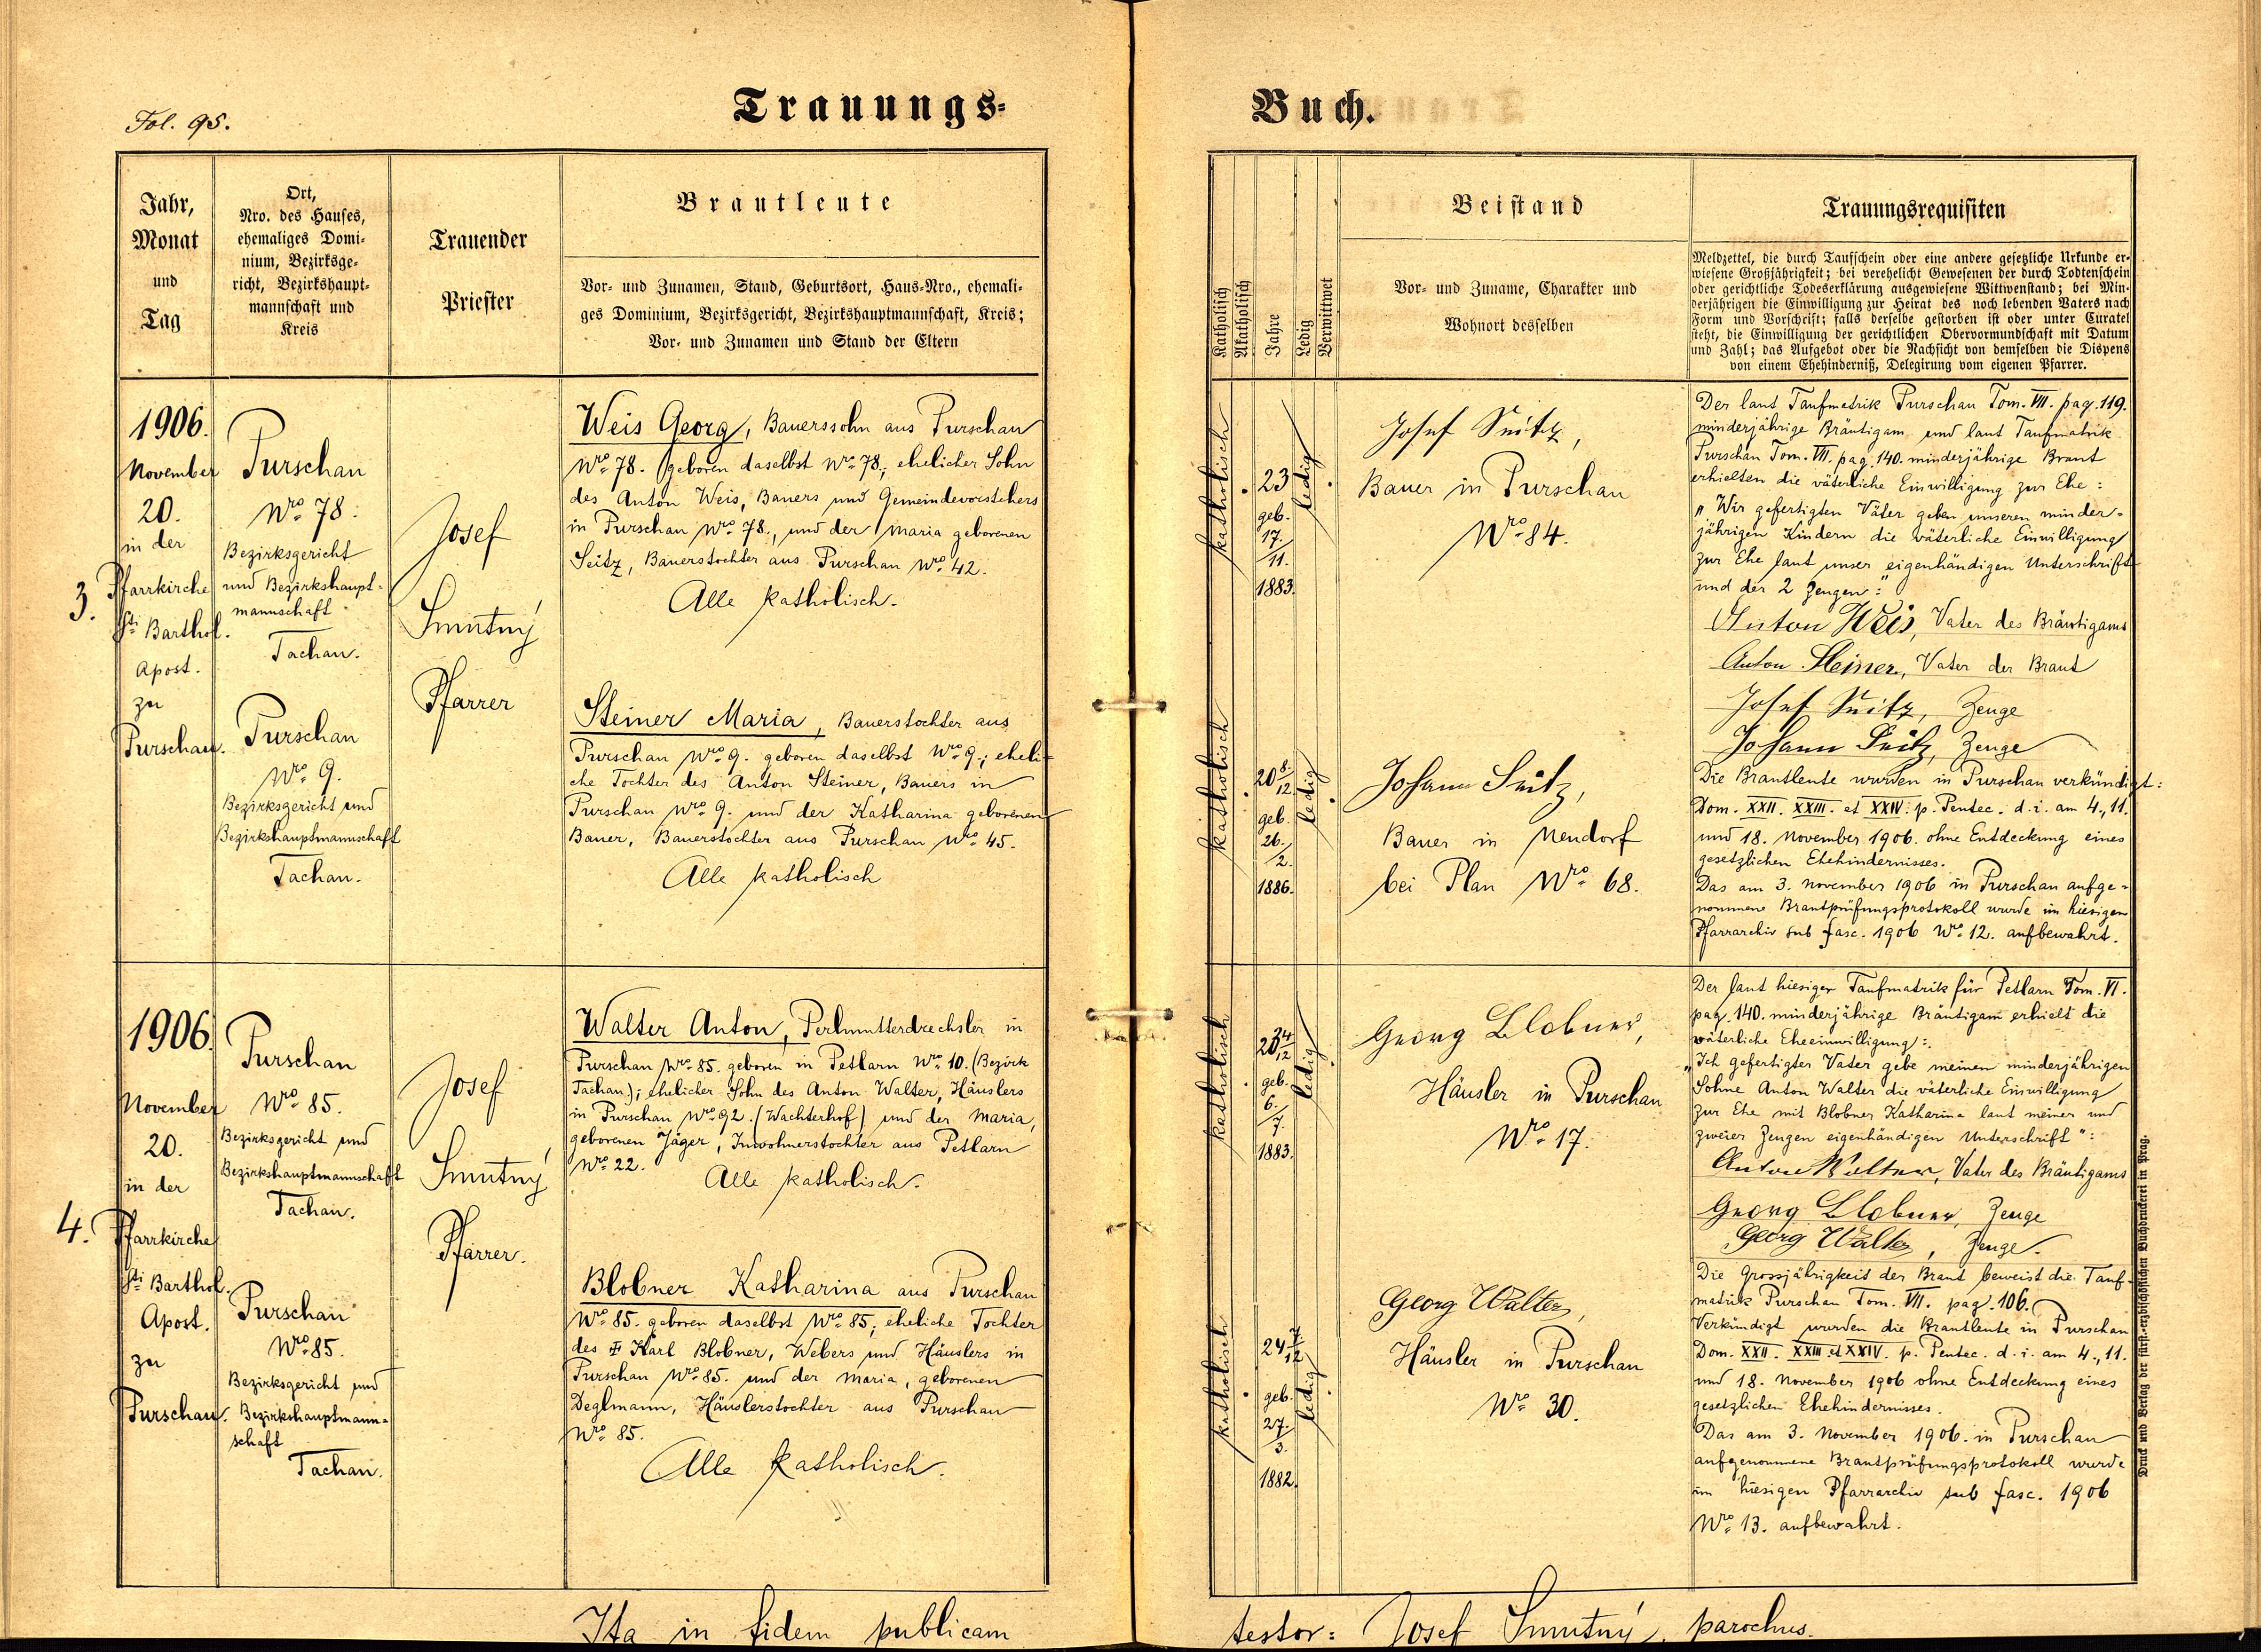 Fol. 95.
Trauungs-
Jahr,
Monat
und
Tag
Ort,
Nro. des Hauses,
ehemaliges Domi-
nium, Bezirksge-
richt, Bezirkshaupt-
mannschaft und
Kreis
Trauender
Priester
Brautleute
Vor- und Zunamen, Stand, Geburtsort, Haus-Nro., ehemali-
ges Dominium, Bezirksgericht, Bezirkshauptmannschaft, Kreis;
Vor- und Zunamen und Stand der Eltern
3.
1906.
November
20.
in der
Pfarrkirche
Sti Barthol.
Apost.
zu
Purschau.
Purschau
Nro 78.
Bezirksgericht
und Bezirkshaupt-
mannschaft
Tachau.
Purschau
Nro 9.
Bezirksgericht und
Bezirkshauptmannschaft
Tachau.
Josef
Smutný
Pfarrer
Weis Georg, Bauerssohn aus Purschau
Nro 78. geboren daselbst Nro 78., ehelicher Sohn
des Anton Weis, Bauers und Gemeindevorstehers
in Purschau Nro 78., und der Maria geborenen
Seitz, Bauerstochter aus Purschau Nro 42.
Alle katholisch.
Steiner Maria, Bauerstochter aus
Purschau Nro 9. geboren daselbst Nro 9.; eheli-
che Tochter des Anton Steiner, Bauers in
Purschau Nro 9. und der Katharina geborenen
Bauer, Bauerstochter aus Purschau Nro 45.
Alle katholisch
4.
1906.
November
20.
in der
Pfarrkirche
Sti Barthol.
Apost.
zu
Purschau.
Purschau
Nro 85.
Bezirksgericht und
Bezirkshauptmannschaft
Tachau.
Purschau
Nro 85.
Bezirksgericht und
Bezirkshauptmann-
schaft
Tachau.
Josef
Smutný
Pfarrer.
Walter Anton, Perlmutterdrechsler in
Purschau Nro 85. geboren in Petlarn Nro 10. (Bezirk
Tachau.); ehelicher Sohn des Anton Walter, Häuslers
in Purschau Nro 92. (Wachterhof) und der Maria,
geborenen Jäger, Inwohnerstochter aus Petlarn
Nro 22.
Alle katholisch.
Blobner Katharina aus Purschau
Nro 85. geboren daselbst Nro 85; eheliche Tochter
des Karl Blobner, Webers und Häuslers in
Purschau Nro 85. und der Maria, geborenen
Deglmann, Häuslerstochter aus Purschau
Nro 85.
Alle katholisch.
Ita in fidem publicam
Buch.
Katholisch
Akatholisch
Jahre
Ledig
Verwittwet
Beistand
Vor- und Zuname, Charakter und
Wohnort desselben
Trauungsrequisiten
Meldzettel, die durch Taufschein oder eine andere gesetzliche Urkunde er-
wiesene Großjährigkeit; bei verehelicht Gewesenen der durch Todtenschein
oder gerichtliche Todeserklärung ausgewiesene Wittwenstand; bei Min-
derjährigen die Einwilligung zur Heirat des noch lebenden Vaters nach
Form und Vorschrift; falls derselbe gestorben ist oder unter Curatel
steht, die Einwilligung der gerichtlichen Obervormundschaft mit Datum
und Zahl; das Aufgebot oder die Nachsicht von demselben die Dispens
von einem Ehehinderniß, Delegirung vom eigenen Pfarrer.
katholisch
23
geb.
17./11.
1883.
ledig
Josef Seitz,
Bauer in Purschau
Nro 84.
katholisch
20 8/12
geb.
26./2.
1886.
ledig
Johann Seitz,
Bauer in Neudorf
bei Plan Nro 68.
Der laut Taufmatrik Purschau Tom. VII. pag. 119.
minderjährige Bräutigam und laut Taufmatrik
Purschau Tom. VII. pag. 140. minderjährige Braut
erhielten die väterliche Einwilligung zur Ehe:
„Wir gefertigten Väter geben unseren minder-
jährigen Kindern die väterliche Einwilligung
zur Ehe laut unser eigenhändigen Unterschrift
und der 2 Zeugen:"
Anton Weis, Vater des Bräutigams
Anton Steiner, Vater der Braut
Josef Seitz, Zeuge
Johann Seitz, Zeuge
Die Brautleute wurden in Purschau verkündigt:
Dom. XXII. XXIII. et XXIV. p. Pentec. d. i. am 4., 11.
und 18. November 1906. ohne Entdeckung eines
gesetzlichen Ehehindernisses.
Das am 3. November 1906 in Purschau aufge-
nommene Brautprüfungsprotokoll wurde im hiesigen
Pfarrarchiv sub fasc. 1906 Nro 12. aufbewahrt.
katholisch
geb.
6./7.
1883.
ledig
Georg Blobner,
Häusler in Purschau
Nro 17.
katholisch
24 7/12
geb.
27./3.
1882.
ledig
Georg Walter,
Häusler in Purschau
Nro 30.
Der laut hiesiger Taufmatrik für Petlarn Tom. VI.
pag. 140. minderjährige Bräutigam erhielt die
väterliche Eheeinwilligung:
„Ich gefertigter Vater gebe meinem minderjährigen
Sohne Anton Walter die väterliche Einwilligung
zur Ehe mit Blobner Katharina laut meiner und
zweier Zeugen eigenhändigen Unterschrift":
Anton Walter, Vater des Bräutigams
Georg Blobner, Zeuge
Georg Walter, Zeuge.
Die Grossjährigkeit der Braut beweist die Tauf-
matrik Purschau Tom. VII. pag. 106.
Verkündigt wurden die Brautleute in Purschau
Dom. XXII. XXIII. et XXIV. p. Pentec. d. i. am 4., 11.
und 18. November 1906 ohne Entdeckung eines
gesetzlichen Ehehindernisses.
Das am 3. November 1906. in Purschau
aufgenommene Brautprüfungsprotokoll wurde
im hiesigen Pfarrarchiv sub fasc. 1906
Nro 13. aufbewahrt.
Druck und Verlag der fürst-erzbischöflichen Buchdruckerei in Prag.
testor: Josef Smutný, parochus.